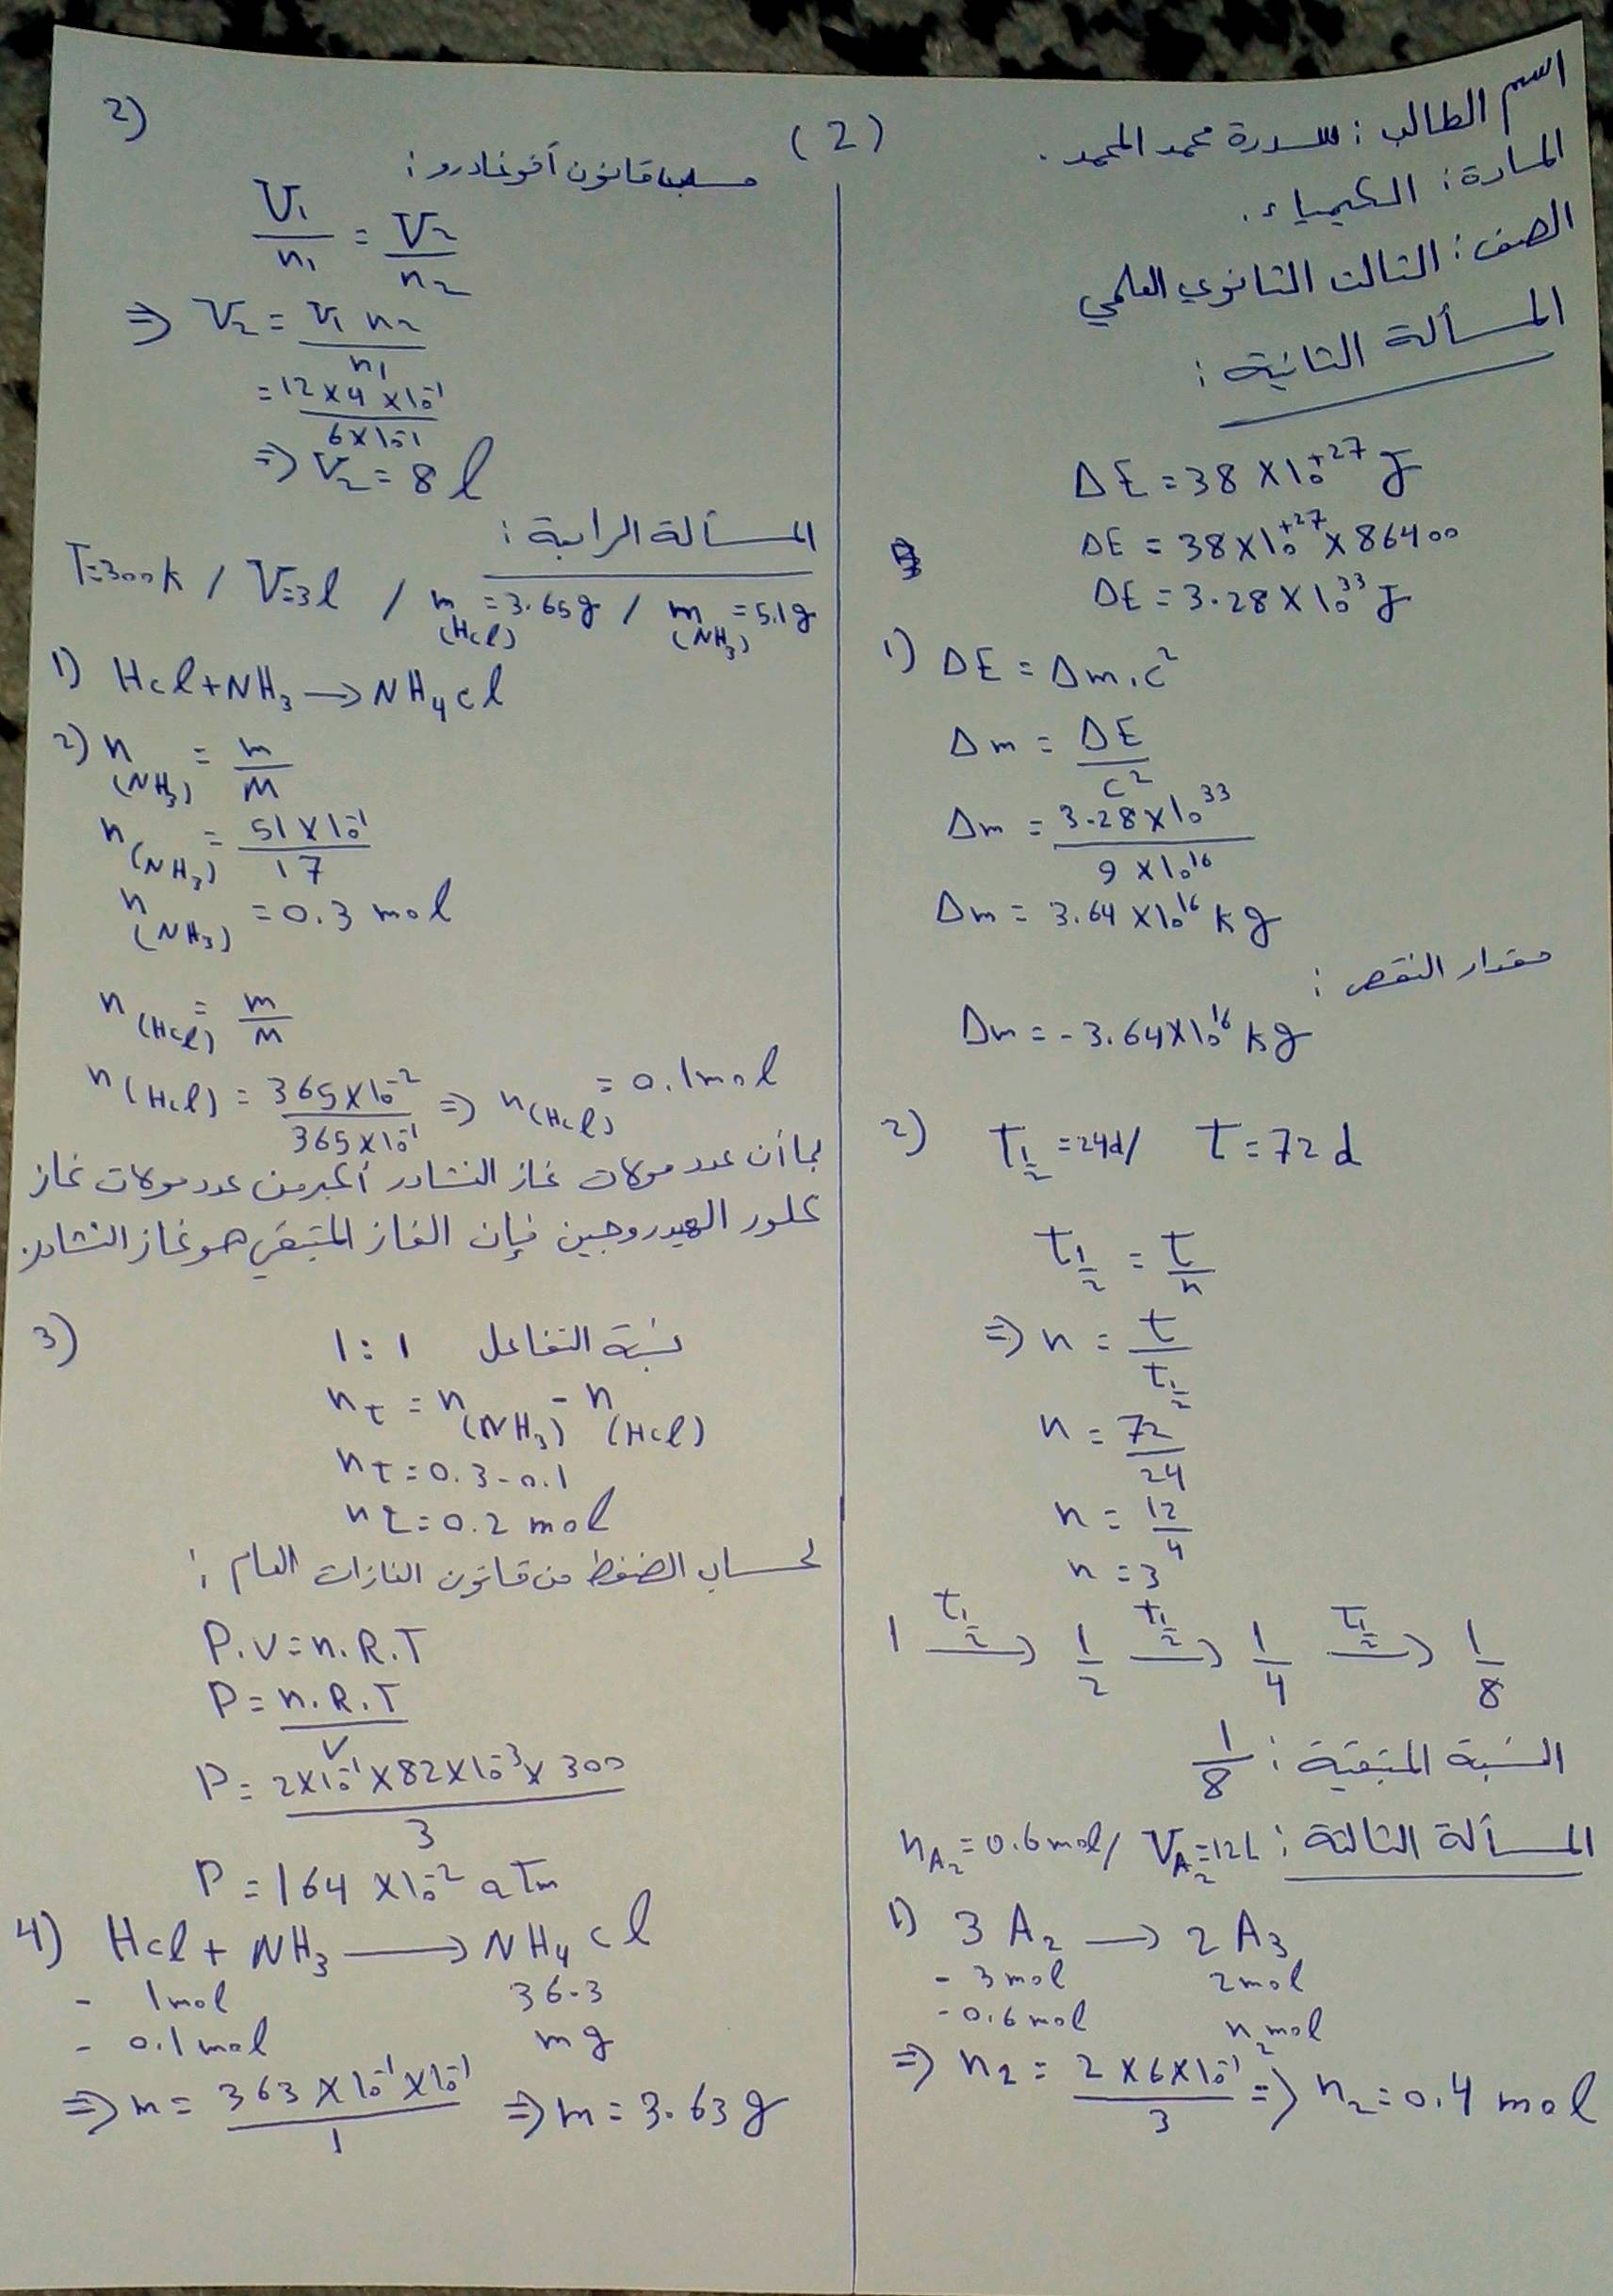 (2)
اسم الطالب : سدرة محمد المحمد .
المادة : الكيمياء .
الصف : الثالث الثانوي العلمي
المسألة الثانية :
ΔE = 38 × 10⁺²⁷ J
ΔE = 38 × 10⁺²⁷ × 86400
ΔE = 3.28 × 10³³ J
1) ΔE = Δm . c²
Δm = ΔE / c²
Δm = 3.28 × 10³³ / 9 × 10¹⁶
Δm = 3.64 × 10¹⁶ kg
مقدار النقص :
Δm = - 3.64 × 10¹⁶ kg
2) t½ = 24d / t = 72 d
t½ = t / n
⇒ n = t / t½
n = 72 / 24
n = 12 / 4
n = 3
1 —t½→ 1/2 —t½→ 1/4 —t½→ 1/8
النسبة المتبقية : 1/8
المسألة الثالثة : V A₂ = 12 L / n A₂ = 0.6 mol
1) 3 A₂ → 2 A₃
- 3 mol 2 mol
- 0.6 mol n₂ mol
⇒ n₂ = 2 × 6 × 10⁻¹ / 3 ⇒ n₂ = 0.4 mol
2)
حسب قانون أفوغادرو :
V₁ / n₁ = V₂ / n₂
⇒ V₂ = V₁ n₂ / n₁
= 12 × 4 × 10⁻¹ / 6 × 10⁻¹
⇒ V₂ = 8 l
المسألة الرابعة :
T = 300 k / V = 3 l / m (HCl) = 3.65 g / m (NH₃) = 5.1 g
1) HCl + NH₃ → NH₄Cl
2) n (NH₃) = m / M
n (NH₃) = 51 × 10⁻¹ / 17
n (NH₃) = 0.3 mol
n (HCl) = m / M
n (HCl) = 365 × 10⁻² / 365 × 10⁻¹ ⇒ n (HCl) = 0.1 mol
بما أن عدد مولات غاز النشادر أكبر من عدد مولات غاز
كلور الهيدروجين فإن الغاز المتبقي هو غاز النشادر.
3) نسبة التفاعل 1 : 1
n t = n (NH₃) - n (HCl)
n t = 0.3 - 0.1
n t = 0.2 mol
لحساب الضغط من قانون الغازات العام :
P.V = n.R.T
P = n.R.T / V
P = 2 × 10⁻¹ × 82 × 10⁻³ × 300 / 3
P = 164 × 10⁻² atm
4) HCl + NH₃ → NH₄Cl
- 1 mol 36.3
- 0.1 mol m g
⇒ m = 363 × 10⁻¹ × 10⁻¹ / 1 ⇒ m = 3.63 g